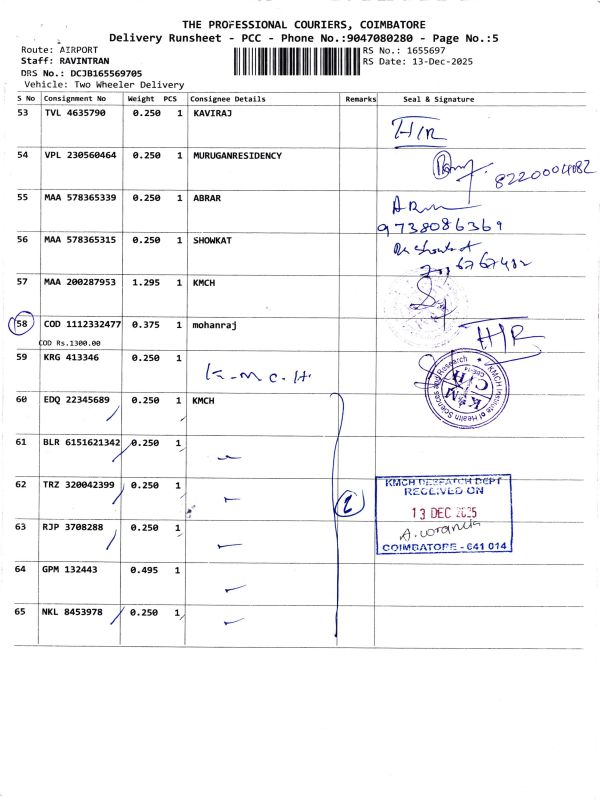 THE PROFESSIONAL COURIERS, COIMBATORE
Delivery Runsheet - PCC - Phone No.:9047080280 - Page No.:5
Route: AIRPORT
RS No.: 1655697
Staff: RAVINTRAN
RS Date: 13-Dec-2025
DRS No.: DCJB165569705
Vehicle: Two Wheeler Delivery
S No Consignment No Weight PCS Consignee Details Remarks Seal & Signature
53 TVL 4635790 0.250 1 KAVIRAJ
H/R
54 VPL 230560464 0.250 1 MURUGANRESIDENCY
8220004082
55 MAA 578365339 0.250 1 ABRAR
9738086369
56 MAA 578365315 0.250 1 SHOWKAT
57 MAA 200287953 1.295 1 KMCH
58 COD 1112332477 0.375 1 mohanraj
H/R
COD Rs.1300.00
59 KRG 413346 0.250 1 K.M.C.H.
KMCH Institute of Health Sciences and Research
60 EDQ 22345689 0.250 1 KMCH
61 BLR 6151621342 0.250 1
62 TRZ 320042399 0.250 1
KMCH DESPATCH DEPT
RECEIVED ON
13 DEC 2025
COIMBATORE - 641 014
63 RJP 3708288 0.250 1
64 GPM 132443 0.495 1
65 NKL 8453978 0.250 1